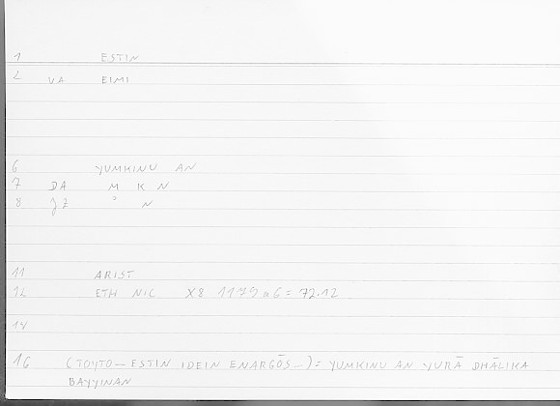 1 ESTIN
2 VA EIMI
6 YUMKINU AN
7 DA M K N
8 JZ ° N
11 ARIST
12 ETH NIC X8 1179 a 6 = 72.12
14
16 (TOYTO — ESTIN IDEIN ENARGŌS —) = YUMKINU AN YURĀ DHĀLIKA
BAYYINAN